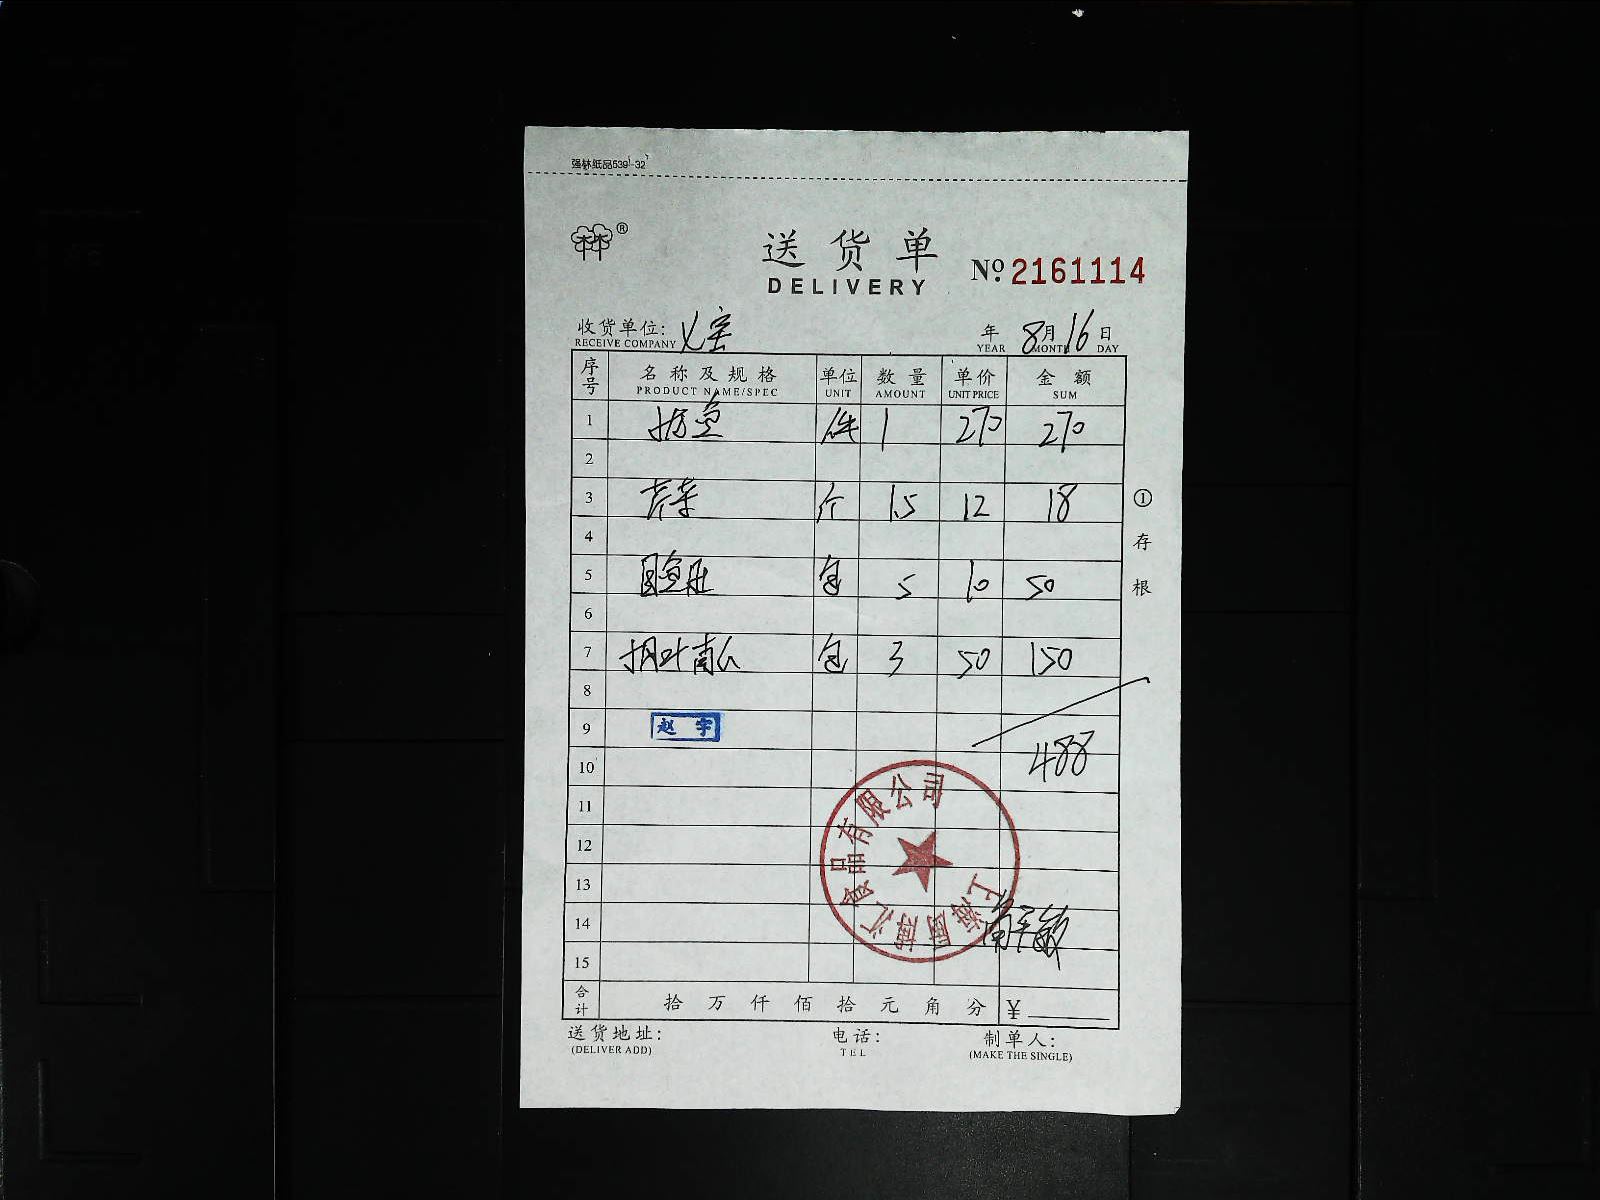 强林纸品539-32
林®
送货单
DELIVERY
No. 2161114
收货单位:
RECEIVE COMPANY
年 8月16日
YEAR MONTH DAY
序号 名称及规格 单位 数量 单价 金额
PRODUCT NAME/SPEC UNIT AMOUNT UNIT PRICE SUM
1 件 1 270 270
2
3 芹菜 斤 1.5 12 18
4
5 包 5 10 50
6
7 包 3 50 150
8
9 赵宇
488
10
11
12
13
14
15
上海 食品有限公司
合计 拾 万 仟 佰 拾 元 角 分 ¥
①存根
送货地址: 电话: 制单人:
(DELIVER ADD) TEL (MAKE THE SINGLE)